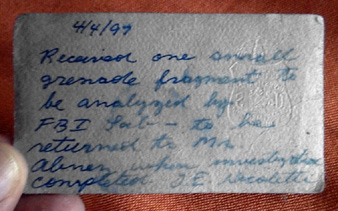 4/4/97
Received one small
grenade fragment to
be analyzed by
FBI Lab - to be
returned to Mr.
Abner when investigation
completed J.E. Nicoletti